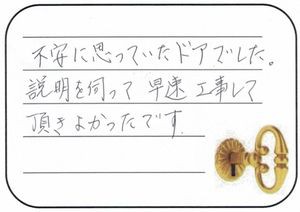 不安に思っていたドアでした。
説明を伺って 早速 工事して
頂きよかったです